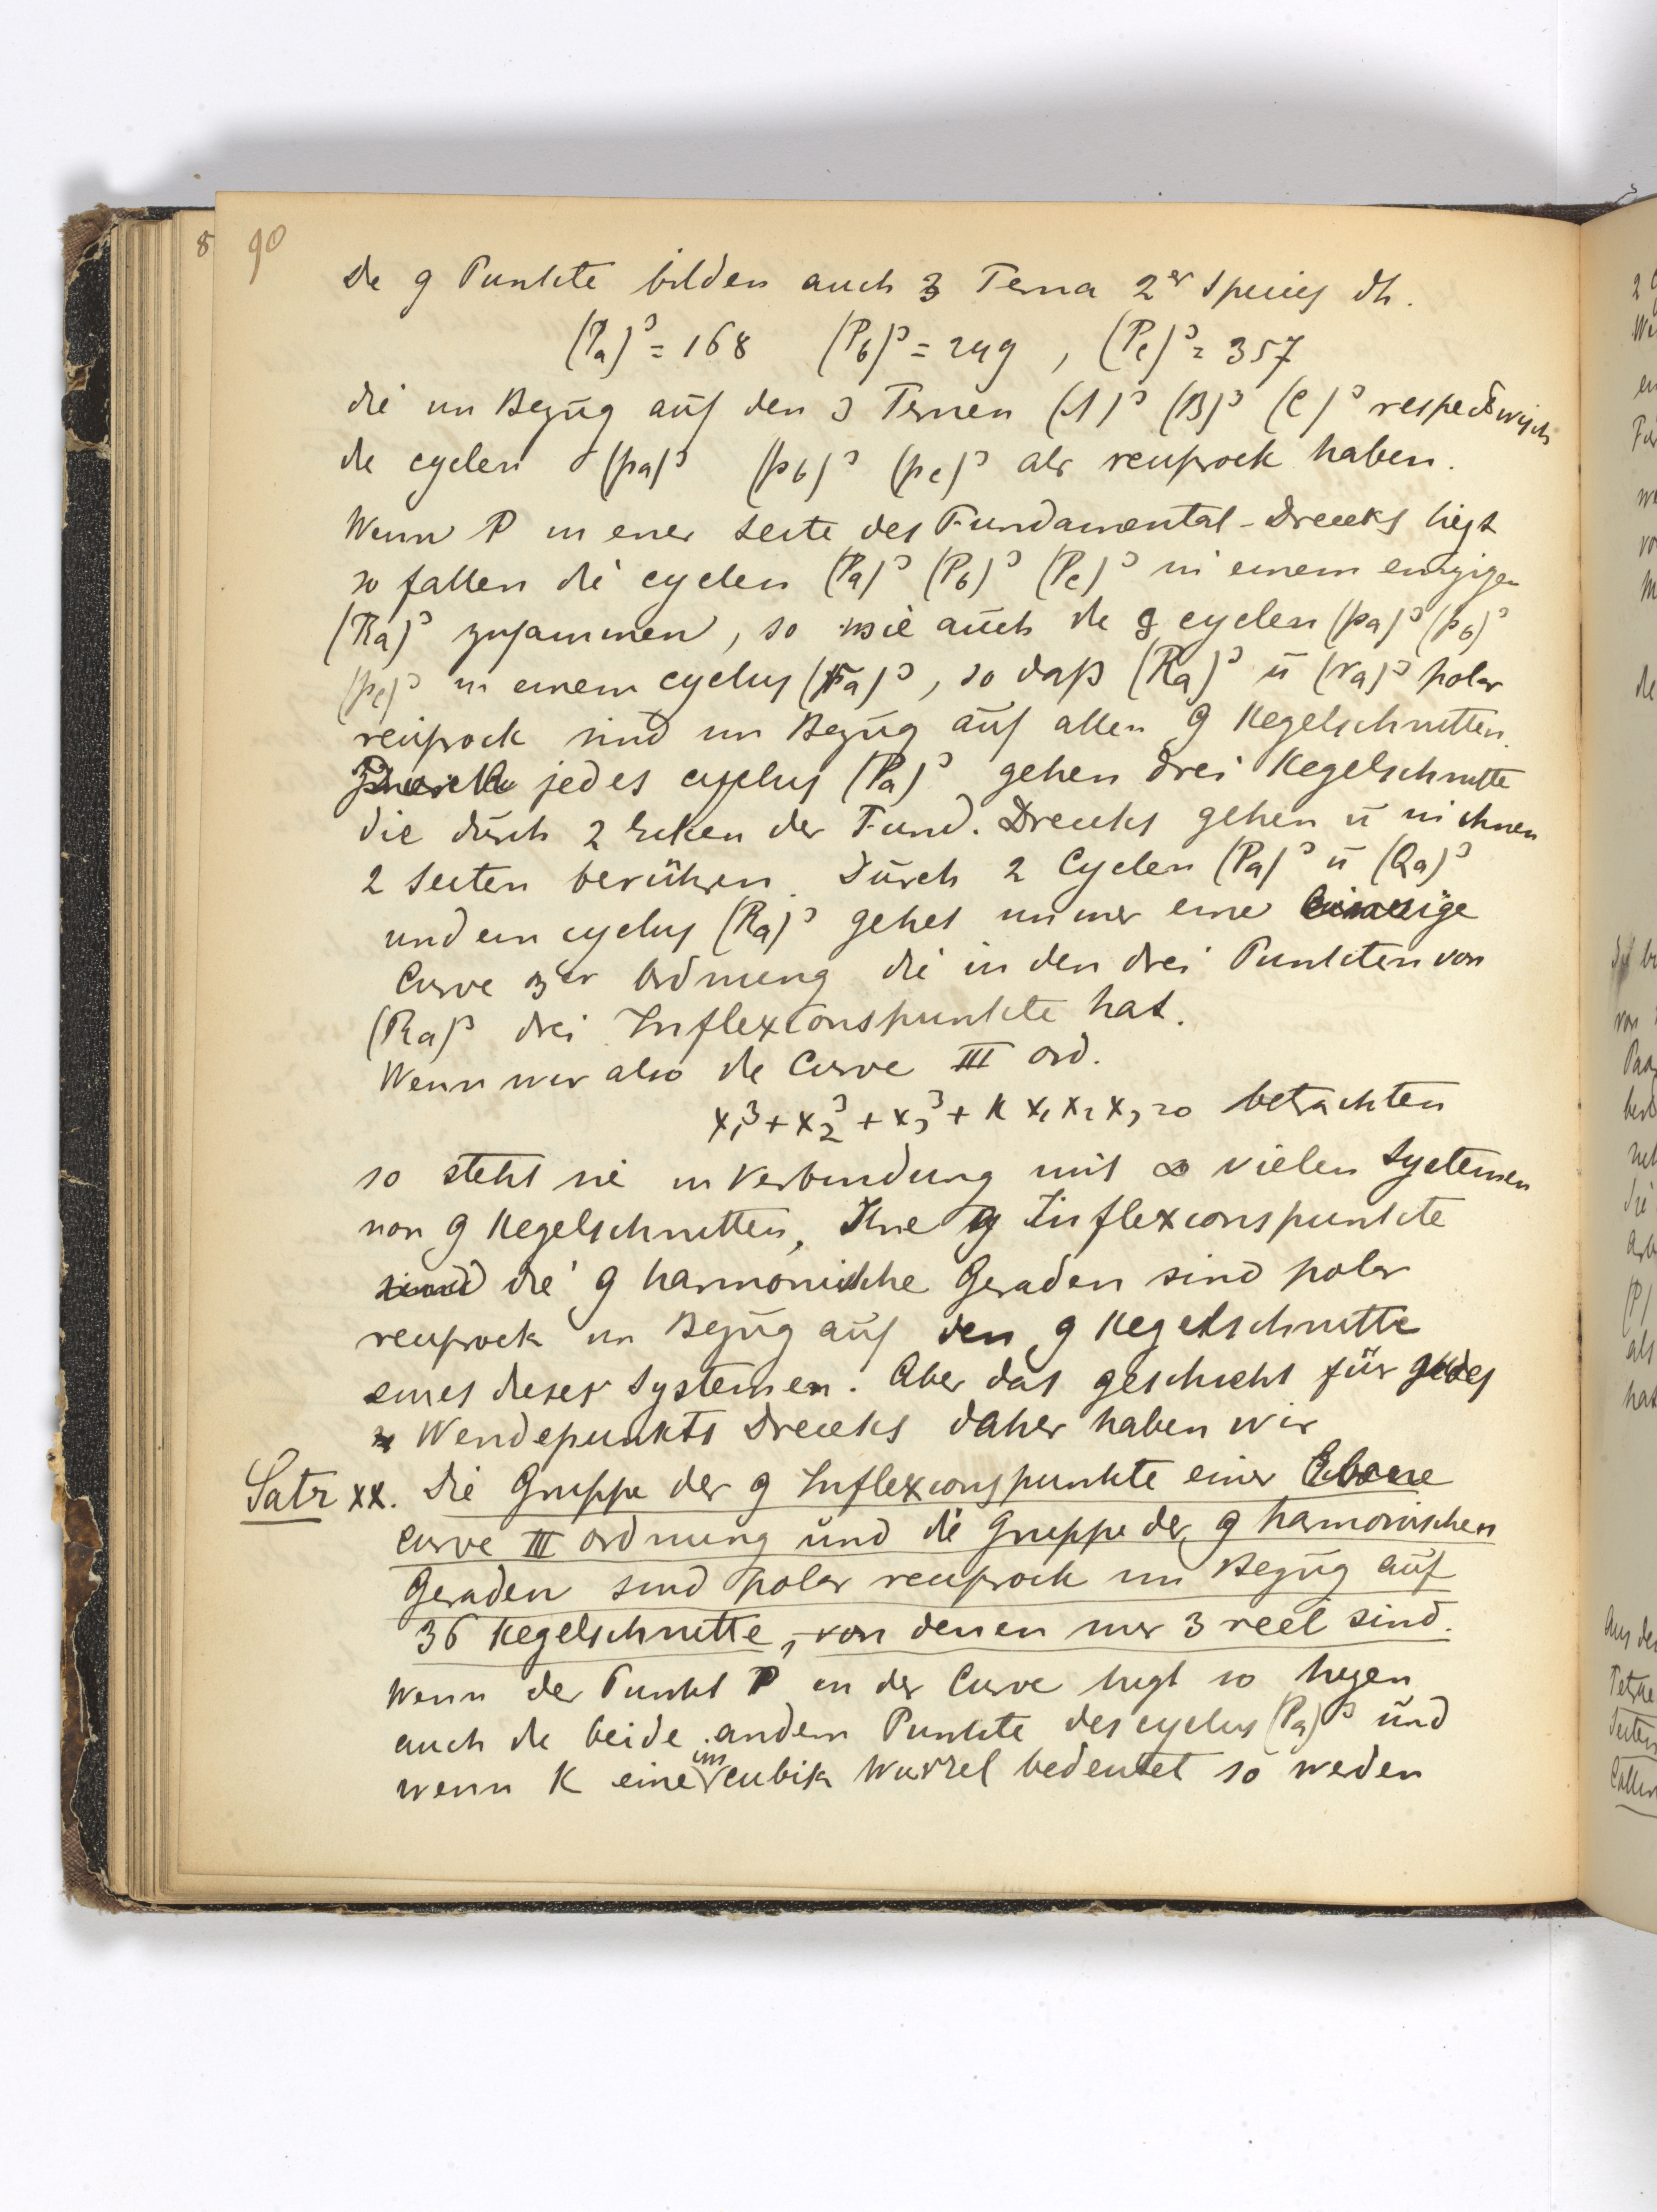 8 90
De 9 Punkte bilden auch 3 Terna 2er Species dh.
(Pa)³ = 168 (Pb)³ = 249 , (Pc)³ = 357
die im Bezūg aūf den 3 Ternen (A)³ (B)³ (C)³ respectivisch
de cyclen (pa)³ (pb)³ (pc)³ als reciprock haben.
Wenn P in einer Seite des Fundamental-Dreieks liegt
so fallen die cyclen (Pa)³ (Pb)³ (Pc)³ in einem einzigen
(Ra)³ zusammen, so wie aūch de 9 cyclen (pa)³ (pb)³
(pc)³ in einem cyclus (ra)³, so daß (Ra)³ ū (ra)³ polar
reciprock sind im Bezūg aūf allen 9 Kegelschnitten.
Durch jedes cyclus (Pa)³ gehen drei Kegelschnitte
die dūrch 2 Ecken der Fund. Dreieks gehen ū in ihnen
2 Seiten berühren. Dūrch 2 Cyclen (Pa)³ ū (Qa)³
und ein cyclus (Ra)³ gehet immer eine einzige
Curve 3er Ordnung die in den drei Punkten von
(Ra)³ drei Inflexionspunkte hat.
Wenn wir also de Curve III Ord.
x₁³ + x₂³ + x₃³ + K x₁ x₂ x₃ = 0 betrachten
so steht sie in Verbindung mit ∞ vielen Systemen
von 9 Kegelschnitten, Ihre 9 Inflexionspunkte
sind die 9 harmonische Geraden sind polar
reciprock im Bezūg aūf den 9 Kegelschnitte
eines dieser Systemen. Aber das geschieht für jedes
Wendepunkts Dreieks daher haben wir
Satz XX. Die Gruppe der 9 Inflexionspunkte einer Ebene
Curve III Ordnung ūnd die Gruppe der 9 harmonischen
Geraden sind polar reciprock im Bezūg aūf
36 Kegelschnitte, von denen nur 3 reel sind.
Wenn der Punkt P in der Curve liegt so liegen
auch de beide andern Punkte des cyclus (Pa)³ ūnd
wenn K eine im cubik Wurzel bedeutet so werden